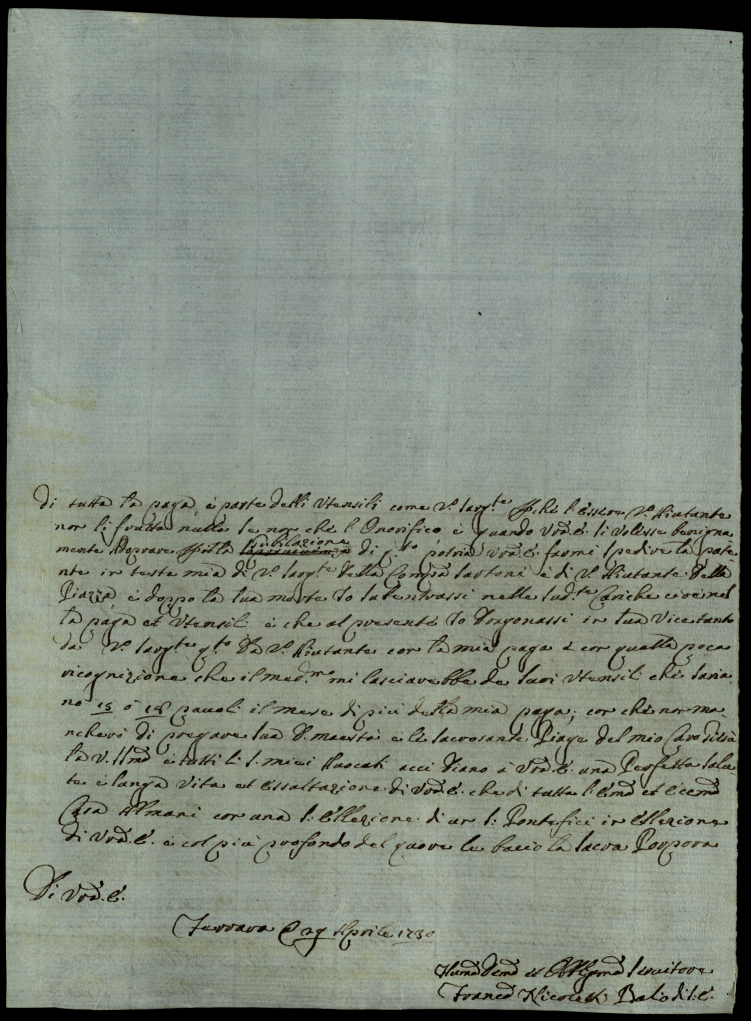 di tutta la paga, è parte delli Utensili come V. Sarg.te p. chè l'essere V. Aiutante
non li frutta nulla se non che l'Onorifico è quando Vrã. E. li volesse benigna
mente Approvare p. illa Giubilazione di q.sto potria Vrã. E. farmi spedire la pate
nte in testa mia di V. Sarg.te della Comp.a Santoni è di V. Aiutante della
Piazza è doppo la sua morte Io subentrassi nelle sud.te Cariche cioè nel
la paga et Utensili è che al presente Io fongonassi in sua Vice tanto
da V. Sarg.te q.to da V. Aiutante con la mia paga è con quella poca
ricognizione che il med.mo mi lasciarebbe de suoi Utensili chè saria
no 15 ò 18 pauoli il mese di più della mia paga; con chè non ma
ncherò di pregare sua D. Maestà è le sacrosante Piage del mio Caro
la V. è tutti li S. miei acciò Diano à Vrã. E. una Perfetta salu
te è longa Vita et Essaltazione di Vrã. E. che di tutta l'
Casa con una S. Ellezione di un S. Pontefici in Ellezione
di Vrã. E. è col più profondo del quore le bacio la sacra Porpora
Di Vrã. E.
Ferrara 29 Aprile 1730
Humã Devmã et Obblgmã servitore
Francõ Nicoletti